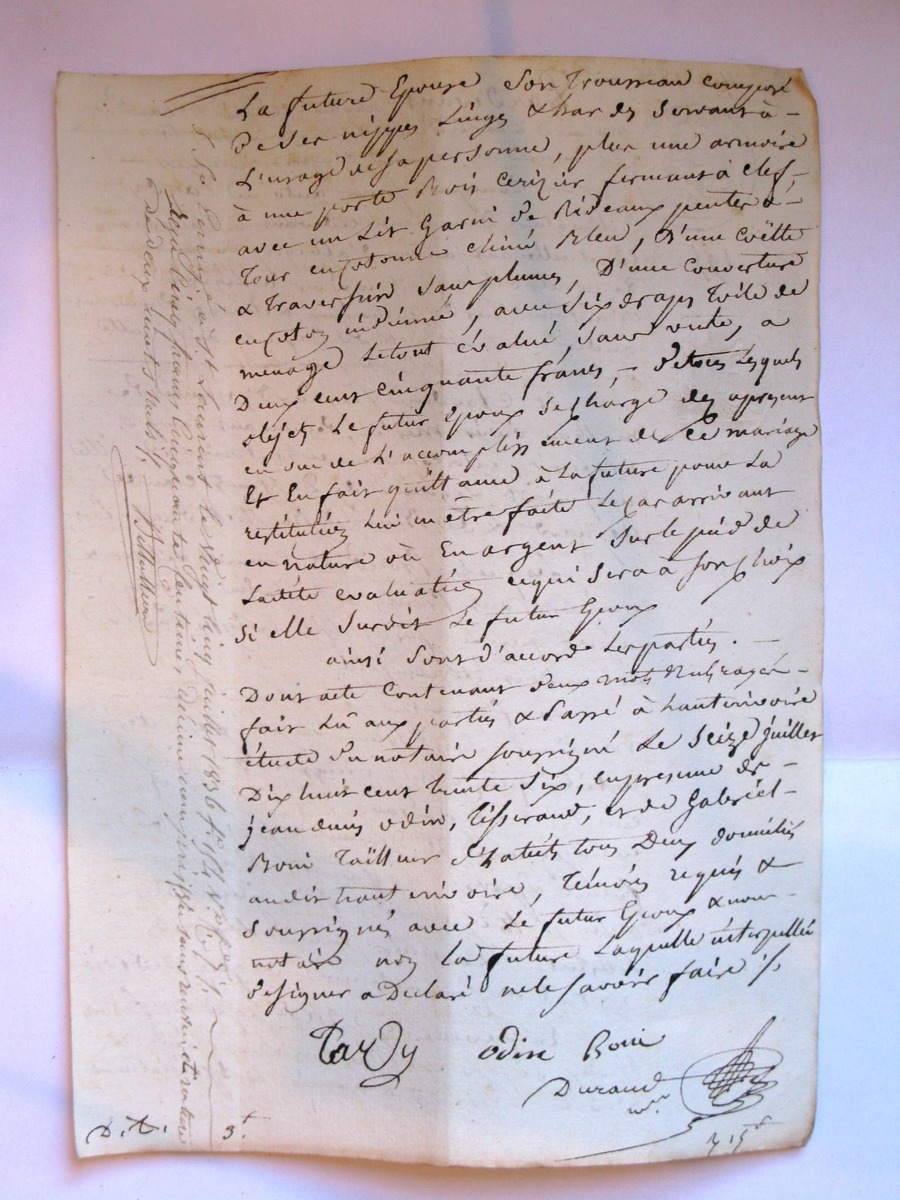 La future Epouse son Trousseau composé
de ses nippes Linges & hardes servant à -
L'usage de sa personne, plus une armoire
à une porte Bois Cerizier fermant à clef, -
avec un Lit Garni de Rideaux pentes à -
Tour en Cotonne chiné Bleu, d'une Coëtte
& traversin sans plumes, D'une couverture
en coton indienne, avec Six draps Toile de
menage Le tout évalué, sans vente, a
Deux cent cinquante francs, - de tous Lesquels
objets Le futur epoux se charge des apresent
en vue de L'accomplissement de Ce mariage
Et En fait quittance à La future pour La
restitution Lui en être faite Le cas arrivant
en nature où En argent Sur le pied de
Ladite evaluation ce qui sera à son Choix
Si elle Survit Le futur Epoux
ainsi sont d'accord Les parties. -
Dont acte Contenant deux mots
fait Lû aux parties & Passé à hauterivoire
étude du notaire soussigné Le Seize juillet
Dix huit cent trente Six, en presence de -
jean denis odin, Tisserand, et de Gabriel -
Boni Tailleur d'habits tous Deux domiciliés
audit hauterivoire, Témoins requis &
Soussignés avec Le futur Epoux & nous -
notaire non La future Laquelle interpellée
de signer a Declaré ne le savoir faire ·/.
Tardy odin Boni
Durand
nre.
D.t. 3f.
St Laurent le vingt cinq juillet 1836 fo
Reçu cinq francs cinquante centimes dixieme compris